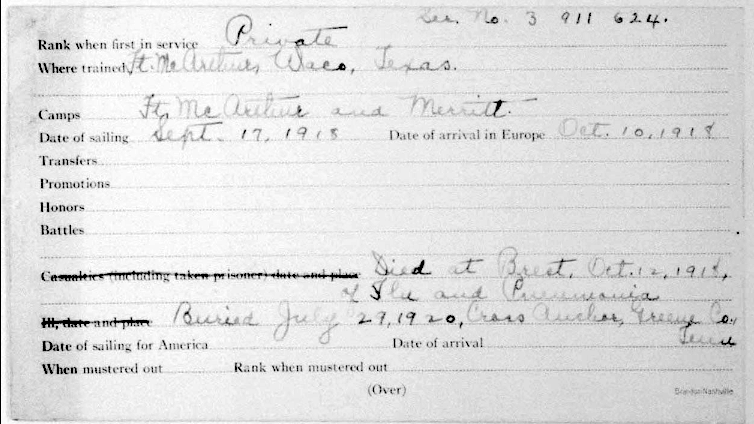 Ser. No. 3 911 624.
Rank when first in service Private
Where trained Ft. McArthur, Waco, Texas.
Camps Ft. McArthur and Merritt.
Date of sailing Sept. 17, 1918 Date of arrival in Europe Oct. 10, 1918
Transfers
Promotions
Honors
Battles
Casualties (including taken prisoner) date and place Died at Brest, Oct. 12, 1918,
of Flu and Pneumonia
Ill, date and place Buried July 29, 1920, Cross Anchor, Greene Co.,
Tenn
Date of sailing for America Date of arrival
When mustered out Rank when mustered out
(Over)
BrandonNashville